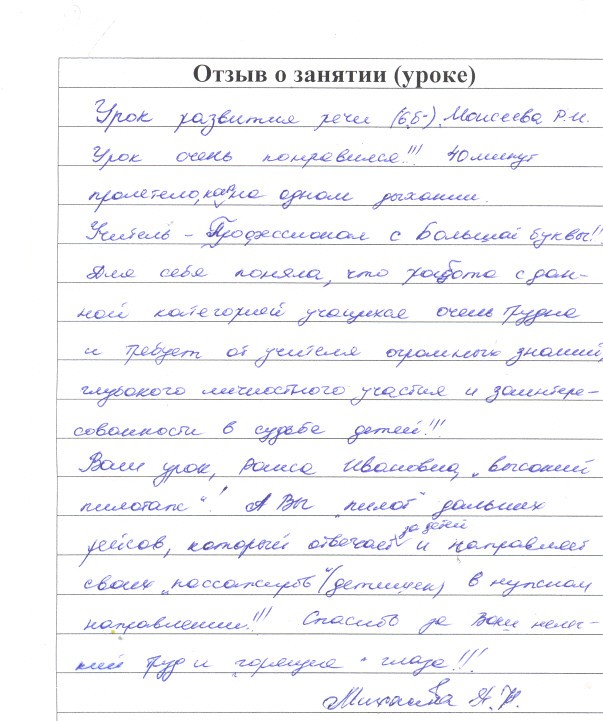 Отзыв о занятии (уроке)
Урок развития речи (6б) Моисеева Р.И.
Урок очень понравился!!! 40 минут
пролетело, как на одном дыхании.
Учитель – Профессионал с Большой буквы!!!
Для себя поняла, что работа с дан-
ной категорией учащихся очень трудна
и требует от учителя огромных знаний,
глубокого личностного участия и заинтере-
сованности в судьбе детей!!!
Ваш урок, Раиса Ивановна, „высокий
пилотаж"! А Вы „пилот" дальних
рейсов, который отвечает за детей и направляет
своих „пассажиров" (детишек) в нужном
направлении!!! Спасибо за Ваш нелег-
кий труд и „горящие" глаза!!!